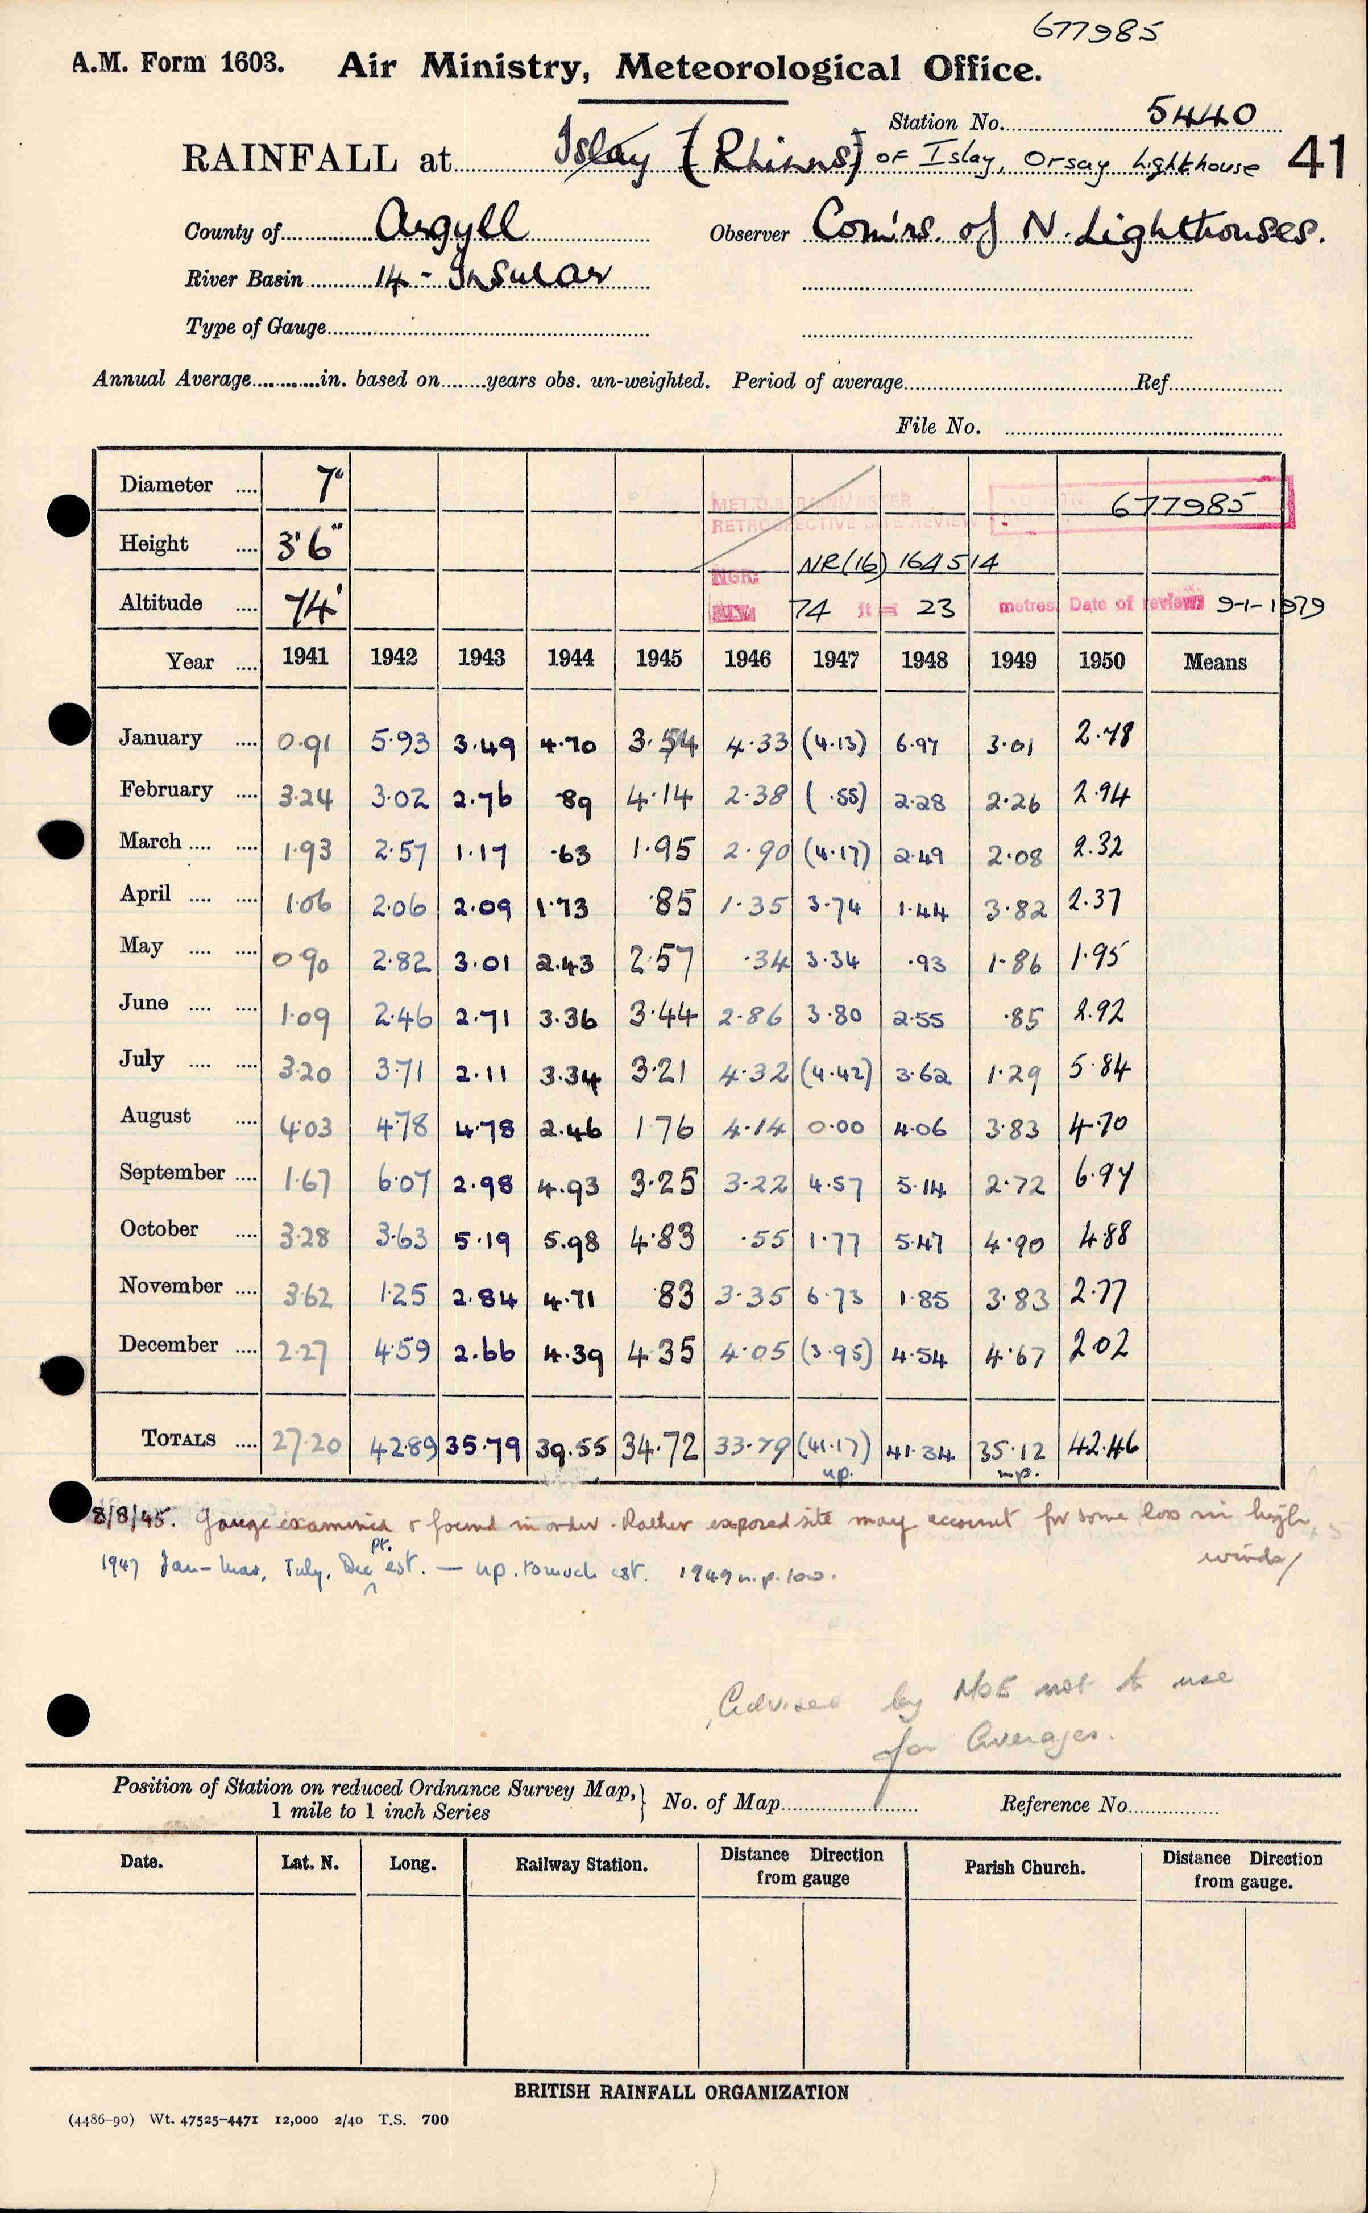 677985
A.M. Form 1603. Air Ministry, Meteorological Office.
Station No. 5440
RAINFALL at Islay [Rhinns] of Islay, Orsay Lighthouse 41
County of Argyll Observer Com'rs. of N. Lighthouses.
River Basin 14 - Insular
Type of Gauge
Annual Average in. based on years obs. un-weighted. Period of average Ref
File No.
Diameter .... 7" MET.O.8 RAINMASTER 677985
RETROSPECTIVE SITE REVIEW
Height .... 3'6" NGR: NR(16) 164514
Altitude .... 74' 74 ft = 23 metres Date of review 9-1-1979
Year .... 1941 1942 1943 1944 1945 1946 1947 1948 1949 1950 Means
January .... 0.91 5.93 3.49 4.70 3.54 4.33 (4.13) 6.97 3.01 2.78
February .... 3.24 3.02 2.76 .89 4.14 2.38 ( .55) 2.28 2.26 2.94
March .... .... 1.93 2.57 1.17 .63 1.95 2.90 (4.17) 2.49 2.08 2.32
April .... .... 1.06 2.06 2.09 1.73 .85 1.35 3.74 1.44 3.82 2.37
May .... .... 0.90 2.82 3.01 2.43 2.57 .34 3.34 .93 1.86 1.95
June .... .... 1.09 2.46 2.71 3.36 3.44 2.86 3.80 2.55 .85 2.92
July .... .... 3.20 3.71 2.11 3.34 3.21 4.32 (4.42) 3.62 1.29 5.84
August .... 4.03 4.78 4.78 2.46 1.76 4.14 0.00 4.06 3.83 4.70
September .... 1.67 6.07 2.98 4.93 3.25 3.22 4.57 5.14 2.72 6.97
October .... 3.28 3.63 5.19 5.98 4.83 .55 1.77 5.47 4.90 4.88
November .... 3.62 1.25 2.84 4.71 .83 3.35 6.73 1.85 3.83 2.77
December .... 2.27 4.59 2.66 4.39 4.35 4.05 (3.95) 4.54 4.67 2.02
TOTALS .... 27.20 42.89 35.79 39.55 34.72 33.79 (41.17) 41.34 35.12 42.46
u.p. n.p.
8/8/45. Gauge examined & found in order. Rather exposed site may account for some loss in high
winds/
1947 Jan-Mar, July, Dec pt. est. — u.p. too much est. 1949 n.p. too.
Advised by MoE not to use
for Averages.
Position of Station on reduced Ordnance Survey Map, } No. of Map Reference No.
1 mile to 1 inch Series
Date. Lat. N. Long. Railway Station. Distance Direction from gauge Parish Church. Distance Direction from gauge.
BRITISH RAINFALL ORGANIZATION
(4486-90) Wt. 47525-4471 12,000 2/40 T.S. 700